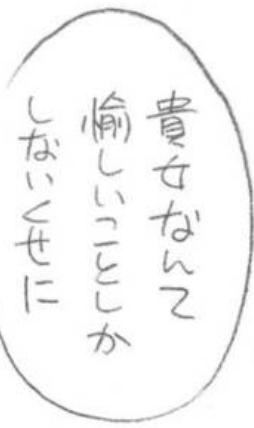 貴女なんて
愉しいことしか
しないくせに